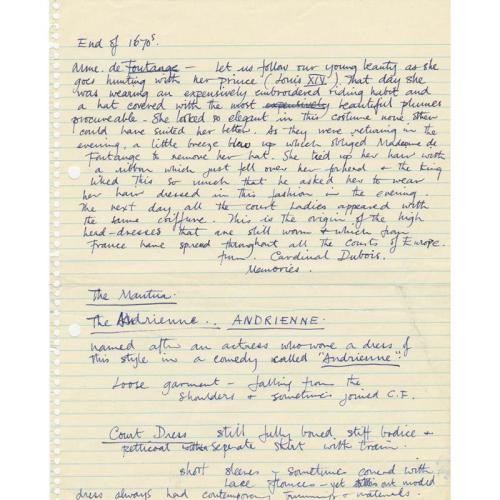 End of 1670s.
Mme. de Foutange – Let us follow our young beauty as she
goes hunting with her prince (Louis XIV). That day she
was wearing an expensively embroidered riding habit and
a hat covered with the most expensively beautiful plumes
procureable – She looked so elegant in this costume none other
could have suited her better. As they were returning in the
evening, a little breeze blew up which obliged Madame de
Fortange to remove her hat. She tied up her hair with
a ribbon which just fell over her forhead + the King
liked this so much that he asked her to wear
her hair dressed in this fashion in the evening.
The next day all the court ladies appeared with
the same coiffure. This is the origin of the high
head-dresses that are still worn + which from
France have spread throughout all the courts of Europe.
from. Cardinal Dubois.
Memories.
The Mantua.
The Andrienne.. ANDRIENNE.
named after an actress who wore a dress of
this style in a comedy called "Andrienne".
Loose garment – falling from the
shoulders + sometimes joined C.F.
Court Dress still fully boned stiff bodice +
petticoat seperate skirt with train.
short sleeves – sometimes covered with
lace flounces – yet this out moded
dress always had contemporary trimmings + materials.